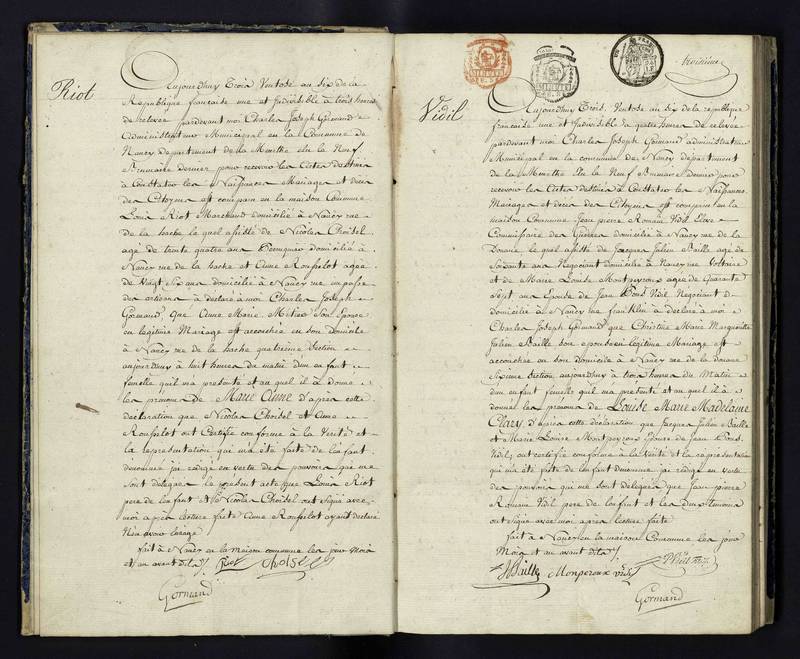 Riot
Aujourdhuy Trois Ventose an six de la
Republique francaise une et Indivisible à trois heures
de relevée pardevant moi Charles Joseph Gormand
administrateur Municipal en la Commune de
Nancy département de la Meurthe élu le Neuf
Frimaire dernier pour recevoir les Actes destinés
à Constater les Naissances Mariages et décès
des Citoyens est comparu en la maison Commune
Louis Riot Marchand domicilié à Nancy rue
de la hache lequel assisté de Nicolas Choisel
agé de trente quatre ans domicilié à
Nancy rue de la hache et Anne Rousselot agée
de vingt six ans domiciliée à Nancy rue
des artisans à déclaré à moi Charles Joseph
Gormand, que Anne Marie Mitier Son Epouse
en légitime Mariage est accouchée en son domicile
à Nancy rue de la hache quatrieme Section
aujourdhuy à huit heures du matin d'un enfant
femelle quil m'a présenté et au quel il à donné
les prenoms de Marie Anne D'après cette
déclaration que Nicolas Choisel et Anne
Rousselot ont Certifié conforme à la Verité et
la représentation qui m'a été faite de l'enfant
denommé j'ai rédigé en vertu des pouvoirs qui me
sont délégués le présent acte que Louis Riot
pere de l'enfant et Nicolas Choisel ont signé avec
moi après lecture faite Anne Rousselot ayant declaré
fait à Nancy en la Maison commune les jour Mois
et an avant dits. Riot Choisel
Gormand
troisieme
Vidil
Aujourdhuy Trois Ventose an six de la republique
francaise une et Indivisible à quatre heures de relevée
pardevant moi Charles Joseph Gormand administrateur
Municipal en la commune de Nancy département
de la Meurthe élu le Neuf dernier pour
recevoir les Actes destinés à Constater les Naissances
Mariages et décès des Citoyens est comparu en la
maison Commune Jean pierre Romain Vidil
Commissaire des Guerres domicilié à Nancy rue de la
Douane lequel assisté de Jacques Julien Baille agé de
Soixante ans Negociant domicilié à Nancy rue Voltaire
et de Marie Louise Montpeyroux agée de Quarante
Sept ans Epouse de Jean Vidil Negociant
domiciliée à Nancy rue franklin à déclaré à moi
Charles Joseph Gormand que Christine Marie Marguerite
Julien Baille son epouse en légitime Mariage est
accouchée en son domicile à Nancy rue de la douane
Sixieme Section, aujourdhuy à trois heures du Matin
d'un enfant femelle qu'il m'a présenté et au quel il à
donné les prenoms de Louise Marie Madelaine
Clary, d'après cette déclaration que Jacques Julien Baille
et Marie Louise Montpeyroux Epouse de Jean
Vidil, ont certifié conforme à la Vérité et la représentation
qui m'a été faite de l'enfant denommé j'ai rédigé en vertu
des pouvoirs qui me sont délégués que Jean pierre
Romain Vidil pere de l'enfant et les deux témoins
ont signé avec moi après lecture faite
fait à Nancy en la maison Commune les jour
Mois et an avant dits.
JBaille Monperoux Vidil
Gormand